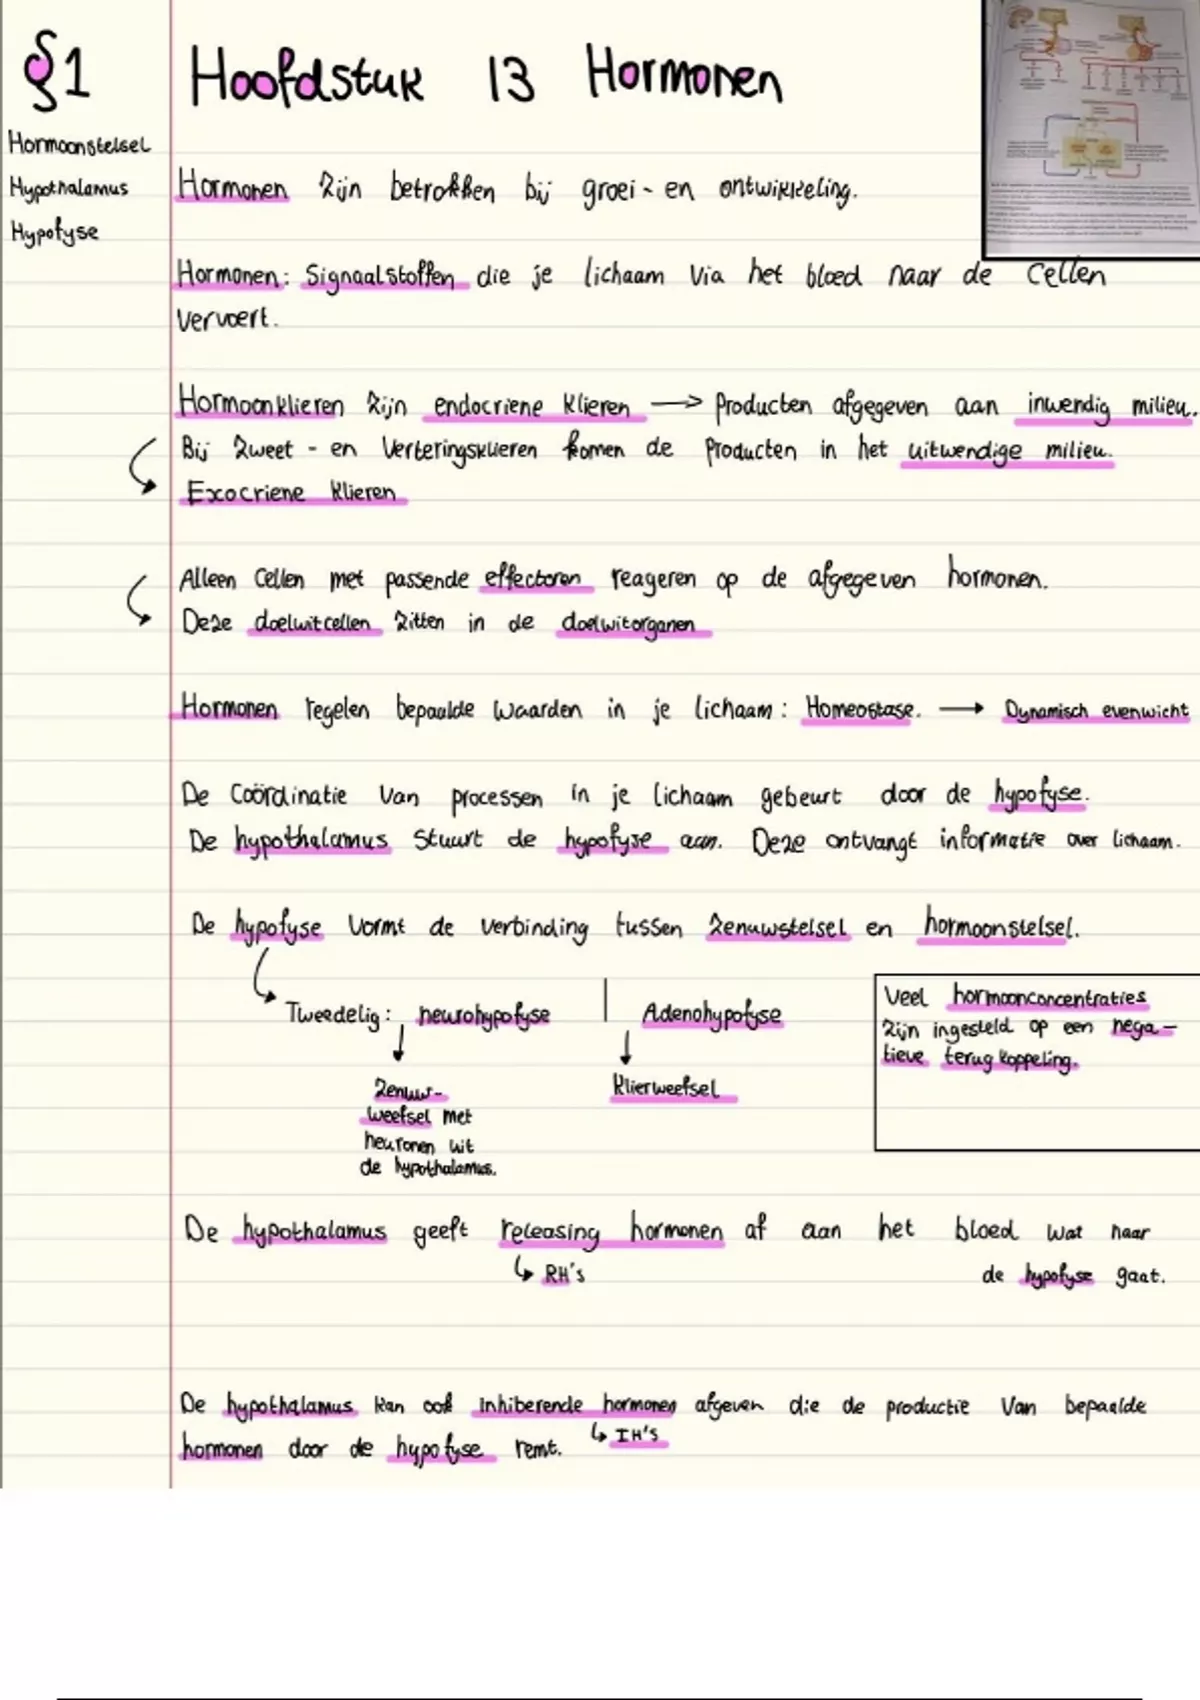 §1
Hoofdstuk 13 Hormonen
Hormoonstelsel
Hypothalamus
Hypofyse
Hormonen zijn betrokken bij groei- en ontwikkeling.
Hormonen: Signaalstoffen die je lichaam via het bloed naar de cellen
vervoert.
Hormoonklieren zijn endocriene klieren → producten afgegeven aan inwendig milieu.
Bij zweet- en verteringsklieren komen de producten in het uitwendige milieu.
Exocriene klieren
Alleen cellen met passende effectoren reageren op de afgegeven hormonen.
Deze doelwitcellen zitten in de doelwitorganen
Hormonen regelen bepaalde waarden in je lichaam: Homeostase. → Dynamisch evenwicht
De coördinatie van processen in je lichaam gebeurt door de hypofyse.
De hypothalamus stuurt de hypofyse aan. Deze ontvangt informatie over lichaam.
De hypofyse vormt de verbinding tussen zenuwstelsel en hormoonstelsel.
Tweedelig: neurohypofyse | Adenohypofyse
Zenuw-
weefsel met
neuronen uit
de hypothalamus.
Klierweefsel
Veel hormoonconcentraties
zijn ingesteld op een nega-
tieve terugkoppeling.
De hypothalamus geeft releasing hormonen af aan het bloed wat naar
↳ RH's
de hypofyse gaat.
De hypothalamus kan ook inhiberende hormonen afgeven die de productie van bepaalde
↳ IH's
hormonen door de hypofyse remt.